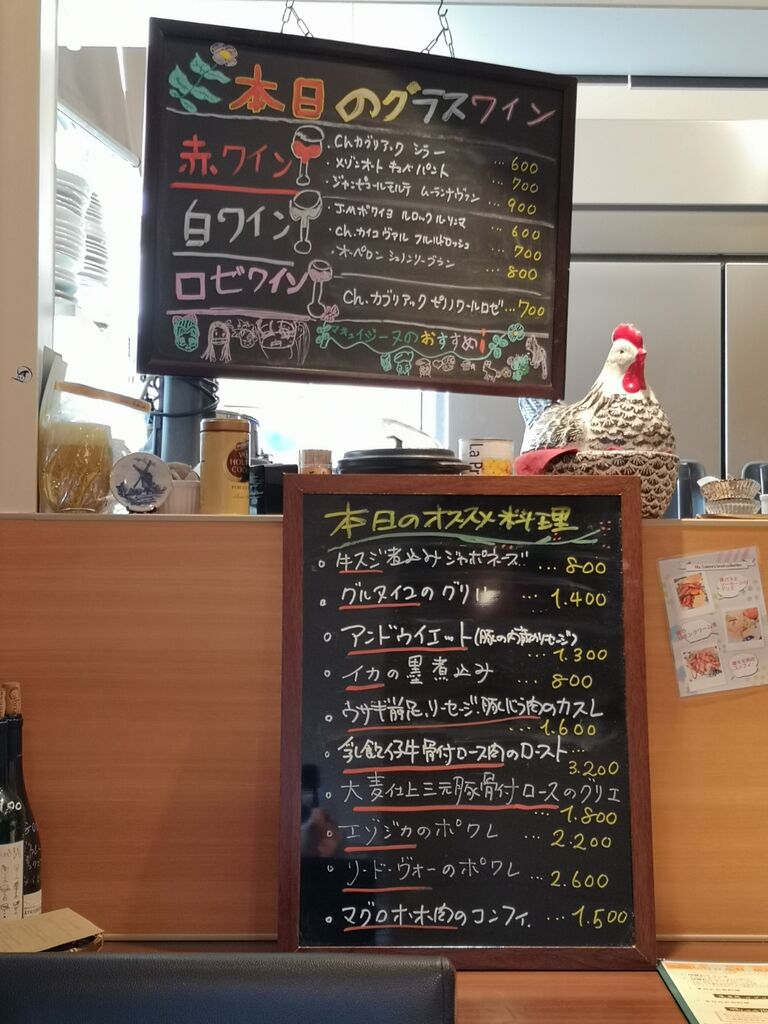 本日のグラスワイン
赤ワイン
・Ch.カブリアック シラー …600
・メゾンオート キュベ パント …700
・ジャンポールモルテ ムーランナヴァン …900
白ワイン
・J.Mボワイヨ …600
・Ch.カイユ ヴァル …700
・オーペロン …800
ロゼワイン
Ch.カブリアック ロゼ…700
マキュイジーヌのおすすめ!
本日のオススメ料理
。牛スジ煮込みジャポネーズ …800
。グルヌイユのグリル …1.400
。アンドウイエット(豚の内臓のソーセージ)
…1.300
。イカの墨煮込み …800
。ウサギ前足、ソーセージ、豚ほほ肉のカスレ
…1.600
。乳飲仔牛骨付ロース肉のロースト…
3.200
。大麦仕上三元豚骨付ロースのグリエ
…1.800
。エゾジカのポワレ …2.200
。リ・ド・ヴォーのポワレ …2.600
。マグロホホ肉のコンフィ. …1.500
La P